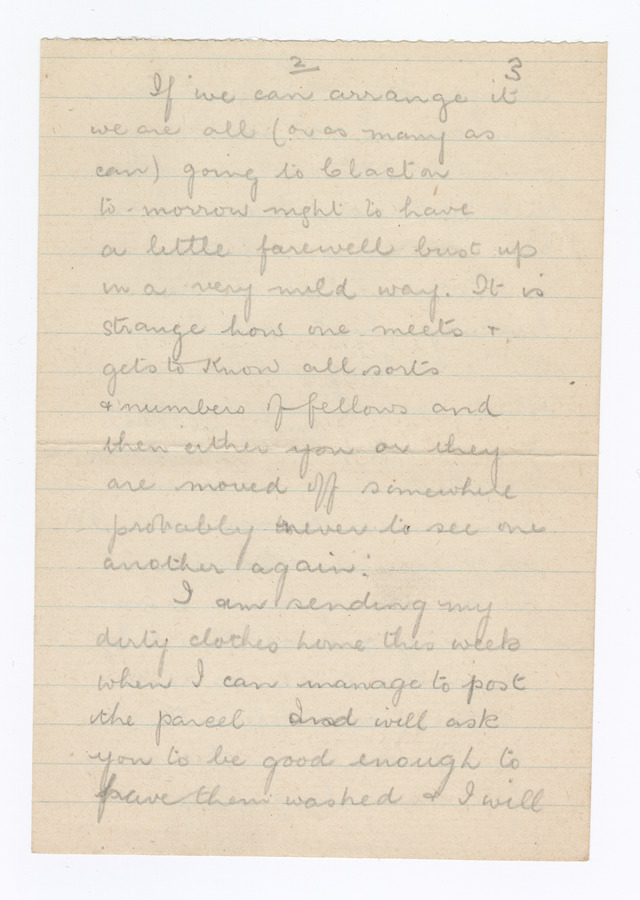 2 3
If we can arrange it
we are all (or as many as
can) going to Clacton
to-morrow night to have
a little farewell bust up
in a very mild way. It is
strange how one meets +
gets to know all sorts
& numbers of fellows and
then either you or they
are moved off somewhere
probably never to see one
another again.
I am sending my
dirty clothes home this week
when I can manage to post
the parcel and will ask
you to be good enough to
have them washed & I will